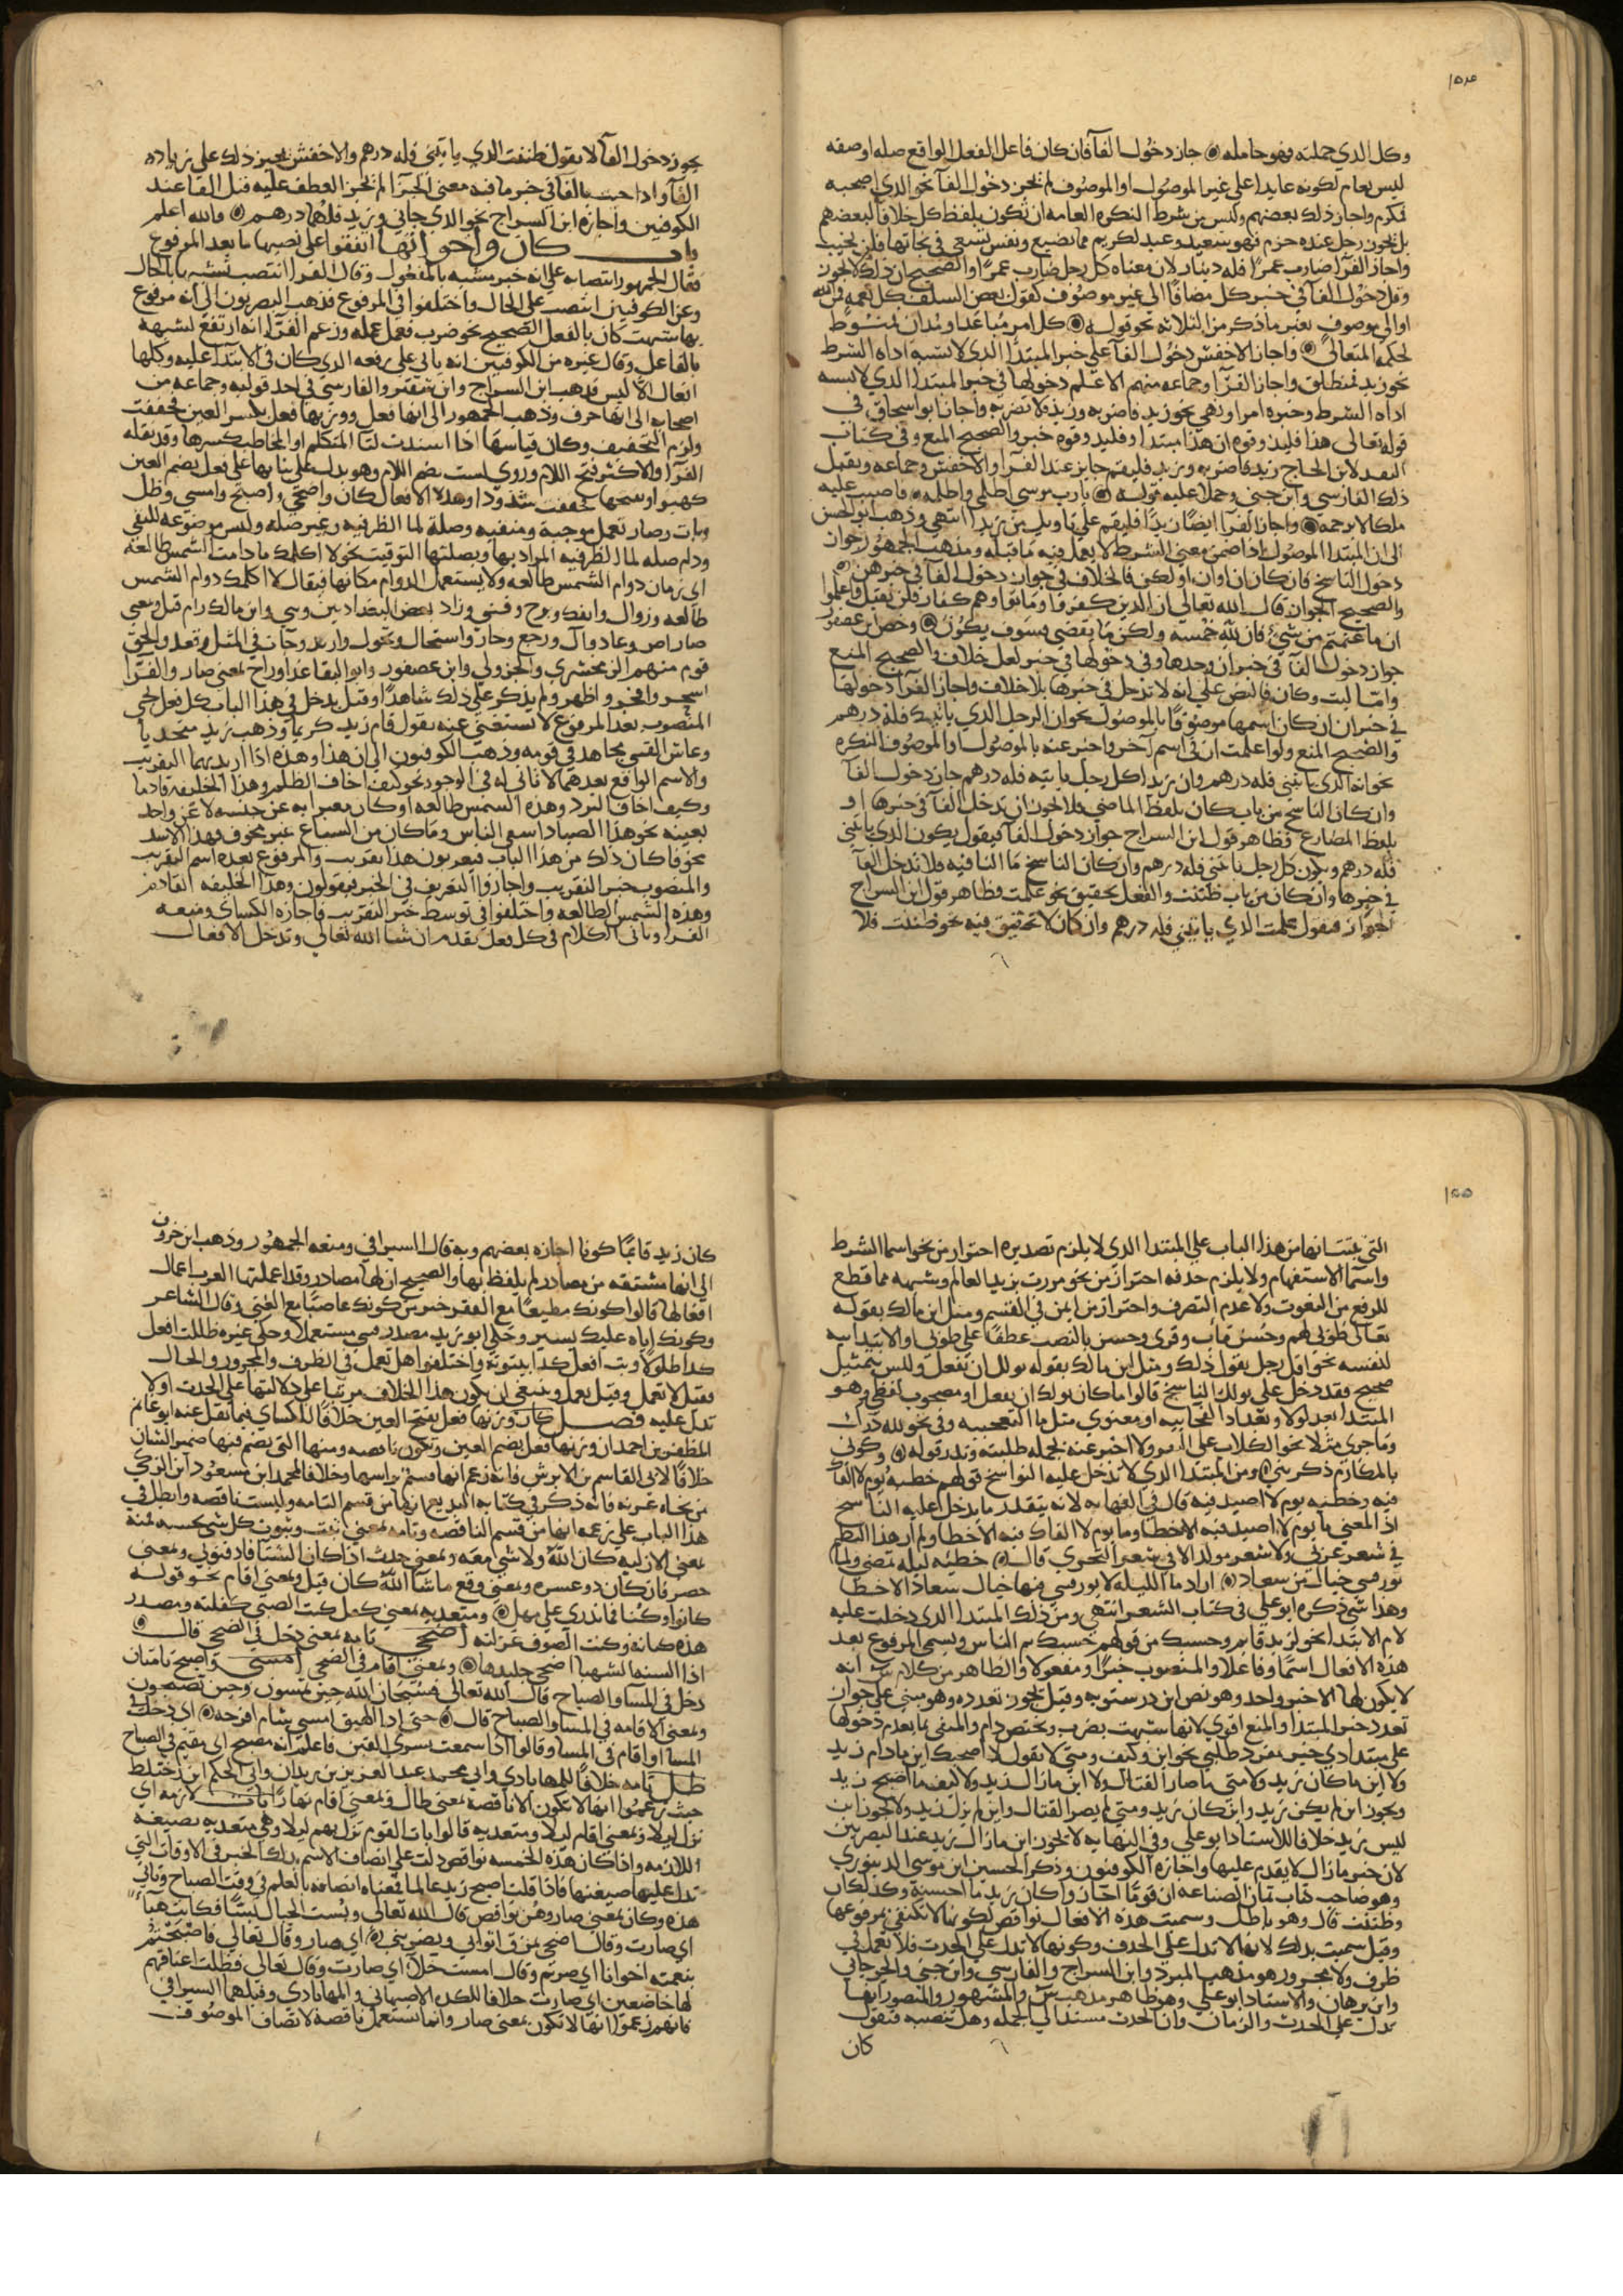 ١٥٤
وكل الذي حملته فهو حامله ۞ جاز دخول الفا فان كان فاعل الفعل الواقع صله او صفه
ليس بعام لكونه عايدا على غير الموصول او الموصوف لم يجز دخول الفا نحو الذي اصحبه
فمكرم واجاز ذلك بعضهم وليس من شرط النكره العامه ان تكون بلفظ كل خلافا لبعضهم
بل يجوز رجل عنده حزم فهو سعيد وعبد لكريم فما يضيع ونفس تسعى في نجاتها فلن تخيب
واجاز الفرا ضارب عمرا فله دينار لان معناه كل رجل ضارب عمرا والصحيح ان ذلك لا يجوز
وقل دخول الفا في خبر كل مضافا الى غير موصوف كقول بعض السلف كل نعمه فمن الله
او الى موصوف بغير ما ذكر من الثلاثه نحو قوله ۞ كل امر مباعد او مدان فمنوط
لحكمه المتعالي ۞ واجاز الاخفش دخول الفا على خبر المبتدا الذي لا يشبه اداه الشرط
نحو زيد فمنطلق واجاز الفرا وجماعه منهم الاعلم دخولها في خبر المبتدا الذي لا يشبه
اداه الشرط وخبره امر او نهي نحو زيد فاضربه وزيد فلا تضربه واجاز ابو اسحاق في
قوله تعالى هذا فليذوقوه ان هذا مبتدا وفليذوقوه خبر والصحيح المنع وفي كتاب
النقد لابن الحاج زيد فاضربه وزيد فليقم جايز عند الفرا والاخفش وجماعه وبقبل
ذلك الفارسي وابن جني وحملا عليه قوله ۞ يارب موسى اظلمي واظلمه ۞ فاصبب عليه
ملكا لا يرحمه ۞ واجاز الفرا ايضا زيدا فليقم على تاويل من زيدا انتهى وذهب ابو الحسن
الى ان المبتدا الموصول اذا ضمن معنى الشرط لا يعمل فيه ما قبله ومذهب الجمهور جواز
دخول الناسخ فان كان ان او ان او لكن فالخلاف في جواز دخول الفا في خبرهن
والصحيح الجواز قال الله تعالى ان الذين كفروا وماتوا وهم كفار فلن يقبل واعلموا
ان ما غنمتم من شيء فان لله خمسه ولكن ما يقضى فسوف يكون ۞ وخص ابن عصفور
جواز دخول الفا في خبر ان وحدها وفي دخولها في خبر لعل خلاف والصحيح المنع
واما ليت وكان فالنص على انه لا تدخل في خبرها بلا خلاف واجاز الفرا دخولها
في خبر ان ان كان اسمها موصوفا بالموصول نحو ان الرجل الذي ياتيك فله درهم
والصحيح المنع ولو اعملت ان في اسم آخر واخبر عنه بالموصول او الموصوف النكره
نحو انه الذي ياتيني فله درهم وان زيدا كل رجل ياتيه فله درهم جاز دخول الفا
وان كان الناسخ من باب كان بلفظ الماضي فلا يجوز ان تدخل الفا في خبرها او
بلفظ المضارع فظاهر قول ابن السراج جواز دخول الفا فيقول يكون الذي ياتيني
فله درهم ويكون كل رجل ياتيني فله درهم وان كان الناسخ ما النافيه فلا تدخل الفا
في خبرها وان كان من باب ظننت والفعل تحقيق نحو علمت فظاهر قول ابن السراج
الجواز فيقول علمت الذي ياتيني فله درهم وان كان لا تحقيق فيه نحو ظننت فلا
يجوز دخول الفا لا يقول ظننت الذي ياتيني فله درهم والاخفش يجيز ذلك على زياده
الفا واذا جيت بالفا في خبر ما فيه معنى الجزا لم يجز العطف عليه قبل الفا عند
الكوفيين واجازه ابن السراج نحو الذي جاني وزيد فلهما درهم ۞ والله اعلم
باب كان واخواتها اتفقوا على نصبها ما بعد المرفوع
فقال الجمهور انتصابه على انه خبر مشبه بالمفعول وقال الفرا انتصب تشبيها بالحال
وعن الكوفيين انتصب على الحال واختلفوا في المرفوع فذهب البصريون الى انه مرفوع
بها شبهت كان بالفعل الصحيح نحو ضرب فعمل عمله وزعم الفرا انه ارتفع لشبهه
بالفاعل وقال غيره من الكوفيين انه باق على رفعه الذي كان في الابتدا عليه وكلها
افعال الا ليس فذهب ابن السراج وابن شقير والفارسي في احد قوليه وجماعه من
اصحابه الى انها حرف وذهب الجمهور الى انها فعل ووزنها فعل بكسر العين فخففت
ولزم التخفيف وكان قياسها اذا اسندت لتا المتكلم او المخاطب كسرها وقد نقله
الفرا والاكثر فتح اللام وروي لست بضم اللام وهو يدل على بنايها على فعل بضم العين
وهذه الافعال كان واضحى واصبح وامسى وظل
وبات وصار تعمل موجبة ومنفيه وصلة لما الظرفيه وغير صله وليس موضوعه للنفي
ودام صله لما الظرفيه المراد بها وبصلتها التوقيت نحو لا اكلمك ما دامت الشمس طالعه
اي زمان دوام الشمس طالعه ولا يستعمل الدوام مكانها فيقال لا اكلمك دوام الشمس
طالعه وزوال وانفك وبرح وفتئ وزاد بعض البغداديين وني وابن مالك رام قبل وبمعنى
صار اض وعاد وآل ورجع وحار واستحال وتحول وارتد وجات في المثل وقعد والحق
قوم منهم الزمخشري والجزولي وابن عصفور وابو البقا غدا وراح بمعنى صار والفرا
اسحر وافجر واظهر ولم يذكر على ذلك شاهدا وقيل يدخل في هذا الباب كل فعل يجي
المنصوب بعد المرفوع لا تستغني عنه تقول قام زيد كريما وذهب زيد متحدثا
وعاش القسي مجاهد في قومه وذهب الكوفيون الى ان هذا وهذه اذا اريد بهما التقريب
والاسم الواقع بعدهما لا ثاني له في الوجود نحو كيف اخاف الظلم وهذا الخليفه قادما
وكيف اخاف البرد وهذه الشمس طالعه او كان معبرا به عن جنسه لا عن واحد
بعينه نحو هذا الصياد اشقى الناس وما كان من السباع غير مخوف فهذا الاسد
مخوفا كان ذلك من هذا الباب فيعربون هذا تقريب والمرفوع بعده اسم التقريب
والمنصوب خبر التقريب واجازوا التعريف في الخبر فيقولون وهذا الخليفه القادم
وهذه الشمس الطالعه واختلفوا في توسط خبر التقريب فاجازه الكساي ومنعه
الفرا وياتي الكلام في كل فعل بقدم ان شا الله تعالى وتدخل الافعال
١٥٥
التي بينانها من هذا الباب على المبتدا الذي لا يلزم تصديره احترازا من نحو اسما الشرط
واسما الاستفهام ولا يلزم حذفه احترازا من نحو مررت بزيد العالم وشبهه مما قطع
للرفع من النعوت ولا عدم التصرف واحترازا من ايمن في القسم ومثل ابن مالك بقوله
تعالى طوبى لهم وحسن مآب وقرئ وحسن بالنصب عطفا على طوبى والابتداييه
لنفسه نحو اقل رجل يقول ذلك ومثل ابن مالك بقوله نولك ان تفعل وليس بتمثيل
صحيح فقد دخل على نولك الناسخ قالوا ما كان نولك ان يفعل او مصحوب لفظي وهو
المبتدا بعد لولا وبعد اذا الفجاييه او معنوي مثل ما التعجبيه وفي نحو لله درك
وما جرى مثلا نحو الكلاب على البقر ولا اخبر عنه بجمله طلبيه وندر قوله ۞ وكوني
بالمكارم ذكريني ۞ ومن المبتدا الذي لا تدخل عليه النواسخ قولهم خطيه يوم لا القاك
فيه وخطيه يوم لا اصيد فيه قال في النهايه لانه يتقدر ما يدخل عليه الناسخ
اذ المعنى ما يوم لا اصيد فيه الا خطا وما يوم لا القاك فيه الا خطا ولم ار هذا النظم
في شعر عربي ولا شعر مولد الا في شعر البحتري قال ۞ خطيه ليله تمضي ولما
يورقني خيال من سعاد ۞ اراد ما الليله لا يورقني فيها خيال سعاد الا خطا
وهذا شي ذكره ابو علي في كتاب الشعر انتهى ومن ذلك المبتدا الذي دخلت عليه
لام الابتدا نحو لزيد قايم وحسبك من قولهم حسبك ينم الناس ويسمى المرفوع بعد
هذه الافعال اسما وفاعلا والمنصوب خبرا ومفعولا والظاهر من كلام س انه
لا يكون لها الا خبر واحد وهو نص ابن درستويه وقيل يجوز تعدده وهو مبني على جواز
تعدد خبر المبتدا والمنع اقوى لانها شبهت بضرب ويختص دام والمنفي بما بعدم دخولها
على مبتدا ذي خبر مفرد طلبي نحو اين وكيف ومتى لا يقول لا اصحبك اين ما دام زيد
ولا اين ما كان زيد ولا متى ما صار القتال ولا اين ما زال زيد ولا كيف ما اصبح زيد
ويجوز اين لم يكن زيد واين كان زيد ومتى لم يصر القتال واين لم يزل زيد ولا يجوز اين
ليس زيد خلافا للاستاذ ابو علي وفي النهايه لا يجوز اين ما زال زيد عند البصريين
لان خبر ما زال لا يقدم عليها واجازه الكوفيون وذكر الحسين ابن موسى الدينوري
وهو صاحب كتاب ثمار الصناعه ان قوما اجازوا كان زيد ما احسنه وكذلك ان
وظننت قال وهو باطل وسميت هذه الافعال نواقص لكونها لا تكتفي بمرفوعها
وقيل سميت بذلك لانها لا تدل على الحدث وكونها لا تدل على الحدث فلا تعمل في
ظرف ولا مجرور هو مذهب المبرد وابن السراج والفارسي وابن جني والجرجاني
وابن برهان والاستاذ ابو علي وهو ظاهر مذهب س والمشهور والمنصور انها
تدل على الحدث والزمان وان الحدث مسند الى الجمله وهل تنصبه فتقول
كان
كان زيد قايما كونا اجازه بعضهم وبه قال السيرافي ومنعه الجمهور وذهب ابن خروف
الى انها مشتقه من مصادر لم يلفظ بها والصحيح ان لها مصادر وقد اعملتها العرب اعمال
افعالها قالوا كونك مطيعا مع الفقر خير من كونك عاصيا مع الغنى وقال الشاعر
وكونك اياه عليك يسير وحكى ابو زيد مصدر فتئ مستعملا وحكى غيره ظللت افعل
كذا ظلولا وبت افعل كذا بيتوته واختلفوا هل تعمل في الظرف والمجرور والحال
فقيل لا تعمل وقيل تعمل وينبغي ان يكون هذا الخلاف مرتبا على دلالتها على الحدث او لا
تدل عليه فصل كان وزنها فعل بفتح العين خلافا للكساي فيما نقل عنه ابو غانم
المظفر بن احمد ان وزنها فعل بضم العين وتكون ناقصه ومنها التي يضم فيها ضمير الشان
خلافا لابي القاسم بن الابرش فانه زعم انها قسم براسها وخلافا لمحمد ابن مسعود ابن الزكي
من نحاه غزنه فانه ذكر في كتابه البديع انها من قسم التامه وليست ناقصه وابطل في
هذا الباب على زعمه انها من قسم الناقصه وتامه بمعنى ثبت وثبوت كل شي بحسبه فمنه
بمعنى الازليه كان الله ولا شي معه وبمعنى حدث اذا كان الشتا فادفئوني وبمعنى
حضر وان كان ذو عسره وبمعنى وقع ما شا الله كان قيل وبمعنى اقام نحو قوله
كانوا وكنا فما ندري على مهل ۞ ومتعديه بمعنى كفل كنت الصبي كفلته ومصدر
هذه كيانه وكنت الصوف غزلته اضحى تامه بمعنى دخل في الضحى قال ۞
اذا السنه الشهبا اضحى جليدها ۞ وبمعنى اقام في الضحى امسى واصبح تامتان
دخل في المسا والصباح قال الله تعالى فسبحان الله حين تمسون وحين تصبحون
وبمعنى الاقامه في المسا والصباح قال ۞ حتى اذا الهيق امسى شام افرخه ۞ اي دخل في
المسا او اقام في المسا وقالوا اذا سمعت بسرى القين فاعلم انه مصبح اي مقيم في الصباح
ظل تامه خلافا للمهابادي وابي محمد عبد العزيز بن زيدان وابي الحكم ابن
حيث زعموا انها لا تكون الا ناقصه بمعنى طال وبمعنى اقام نهارا بات لازمه اي
نزل ليلا وبمعنى اقام ليلا ومتعديه قالوا بات القوم نزل بهم ليلا وهي متعديه بصيغه
اللازمه واذا كان هذه الخمسه نواقص دلت على اتصاف الاسم بذلك الخبر في الاوقات التي
تدل عليها صيغتها فاذا قلت اصبح زيد عالما فمعناه اتصافه بالعلم في وقت الصباح وتاتي
هذه وكان بمعنى صار وهن نواقص قال الله تعالى وبست الجبال بسا فكانت هباء
اي صارت وقال اضحى يمزق اثوابي ويضربني ۞ اي صار وقال تعالى فاصبحتم
بنعمته اخوانا اي صرتم وقال امست خلاء اي صارت وقال تعالى فظلت اعناقهم
لها خاضعين اي صارت خلافا للكذه الاصبهاني والمهابادي وقبلهما السيرافي
فانهم زعموا انها لا تكون بمعنى صار وانما تستعمل ناقصه لاتصاف الموصوف